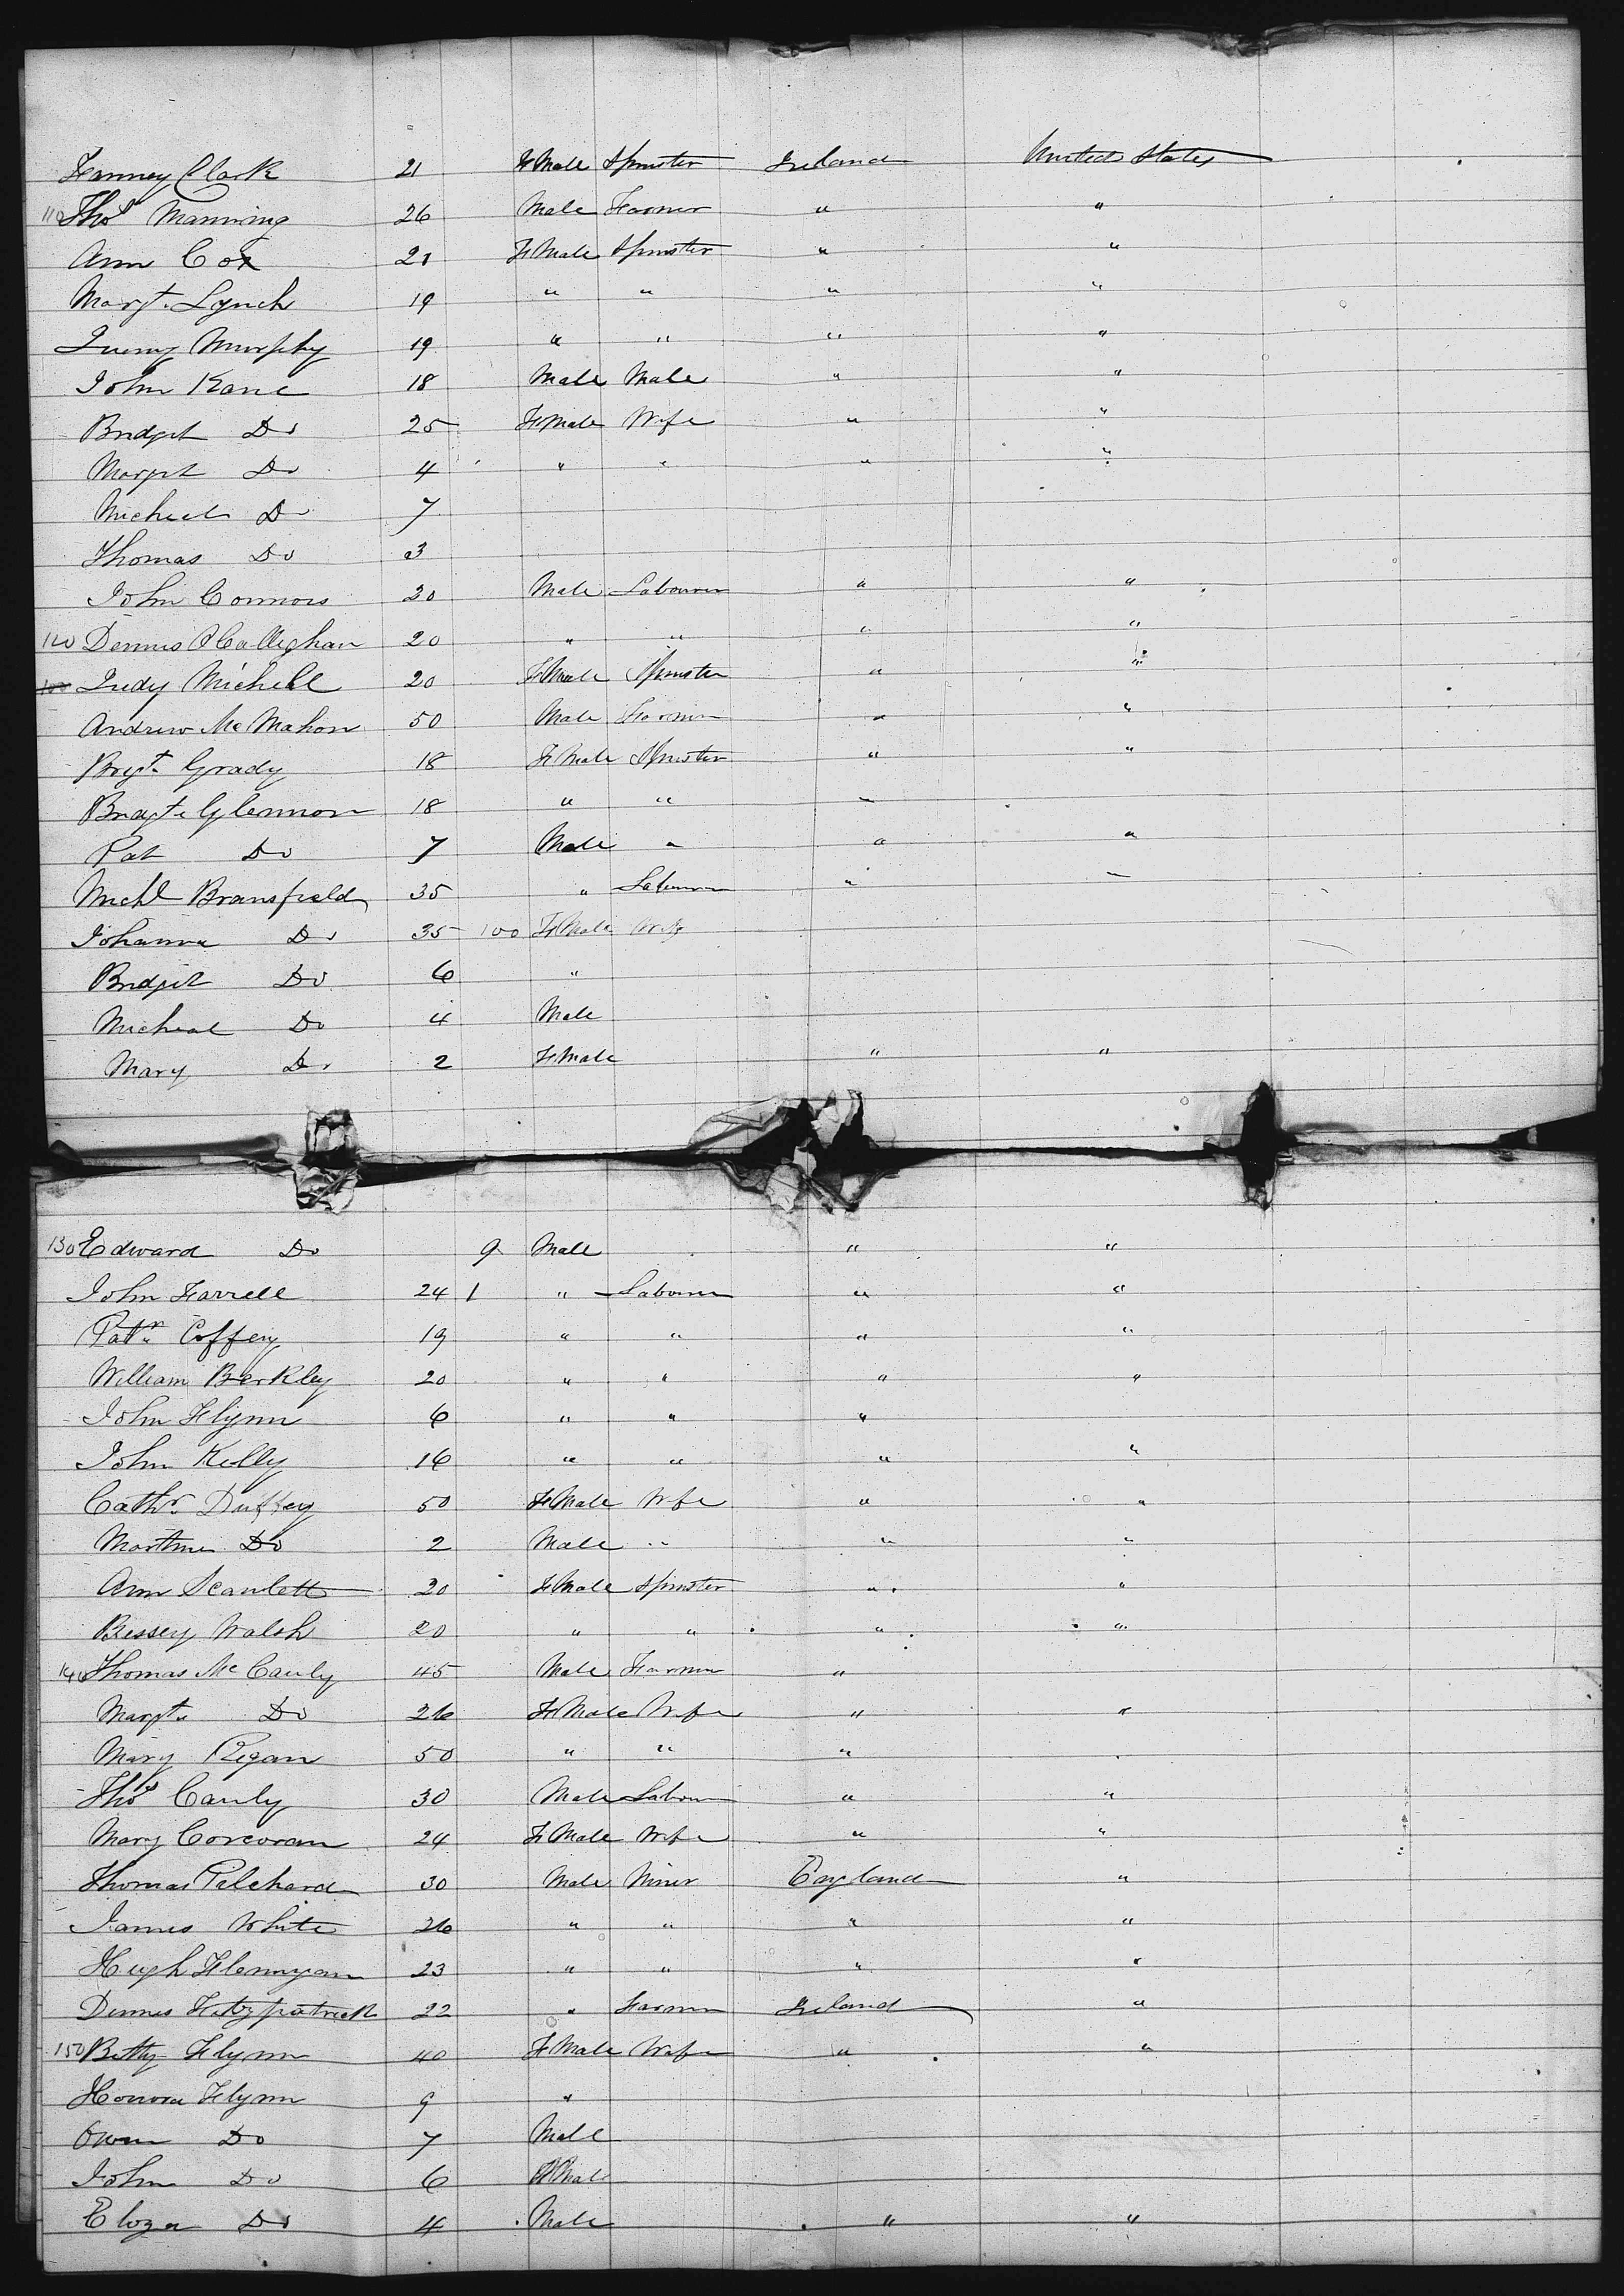 Fanney Clark 21 FMale Spinster Ireland United States
110 Thos Manning 26 Male Farmer " "
Ann Cox 21 FMale Spinster " "
Margt. Lynch 19 " " " "
Murphy 19 " " " "
John Kane 18 Male Male " "
Bridget Do 25 FMale Wife " "
Margt Do 4 " " " "
Micheal Do 7
Thomas Do 3
John Connors 20 Male Labourer " "
120 Dennis O Calleghan 20 " " " "
Judy Michell 20 FMale Spinster " "
Andrew Mc Mahon 50 Male Farmer " "
Brgt. Grady 18 FMale Spinster " "
Bridgt. Glennon 18 " " "
Pat Do 7 Male " " "
Michl Bransfield 35 " Labourer " "
Johanna Do 35 100 FMale Wife
Bridgit Do 6 "
Micheal Do 4 Male
Mary Do 2 FMale " "
130 Edward Do 9 Male " "
John Farrell 24 1 " Labourer " "
Patk. Coffey 19 " " " "
William Berkley 20 " " " "
John Flynn 6 " " "
John Kelly 16 " " " "
Cathr. Duffey 50 FMale Wife " "
Do 2 Male " " "
Ann Scanlett 20 FMale Spinster " "
Bessey Walsh 20 " " " "
140 Thomas Mc Cauly 45 Male Farmer "
Margt. Do 26 FMale Wife " "
Mary Regan 50 " " "
Thos Cauly 30 Male Labour " "
Mary Corcoran 24 FMale Wife " "
Thomas Pilchard 30 Male Miner England "
James White 26 " " " "
Hugh Flannygan 23 " " " "
Dennis Fitzpatrick 22 " Farmer Ireland "
150 Betty Flynn 40 FMale Wife " "
Honora Flynn 9 "
Owen Do 7 Male
John Do 6 Male
Eliza Do 4 Male " "